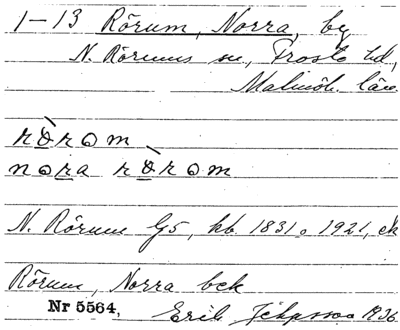 1-13 Rörum, Norra, by
N. Rörums sn, Frosta hd,
Malmöh. län
rò̱rom
nora rò̱rom
N. Rörum G5, kb 1831 o 1921, ek
Rörum, Norra bek
Nr 5564, Erik 1936